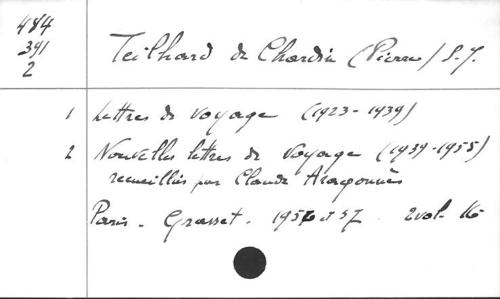 484
391
2
Teilhard de Chardin (Pierre) S.J.
1 Lettres de voyage (1923-1939)
2 Nouvelles lettres de voyage (1939-1955)
recueillies par Claude Aragonnès
Paris. Grasset. 1956 et 57. 2 vol. 16